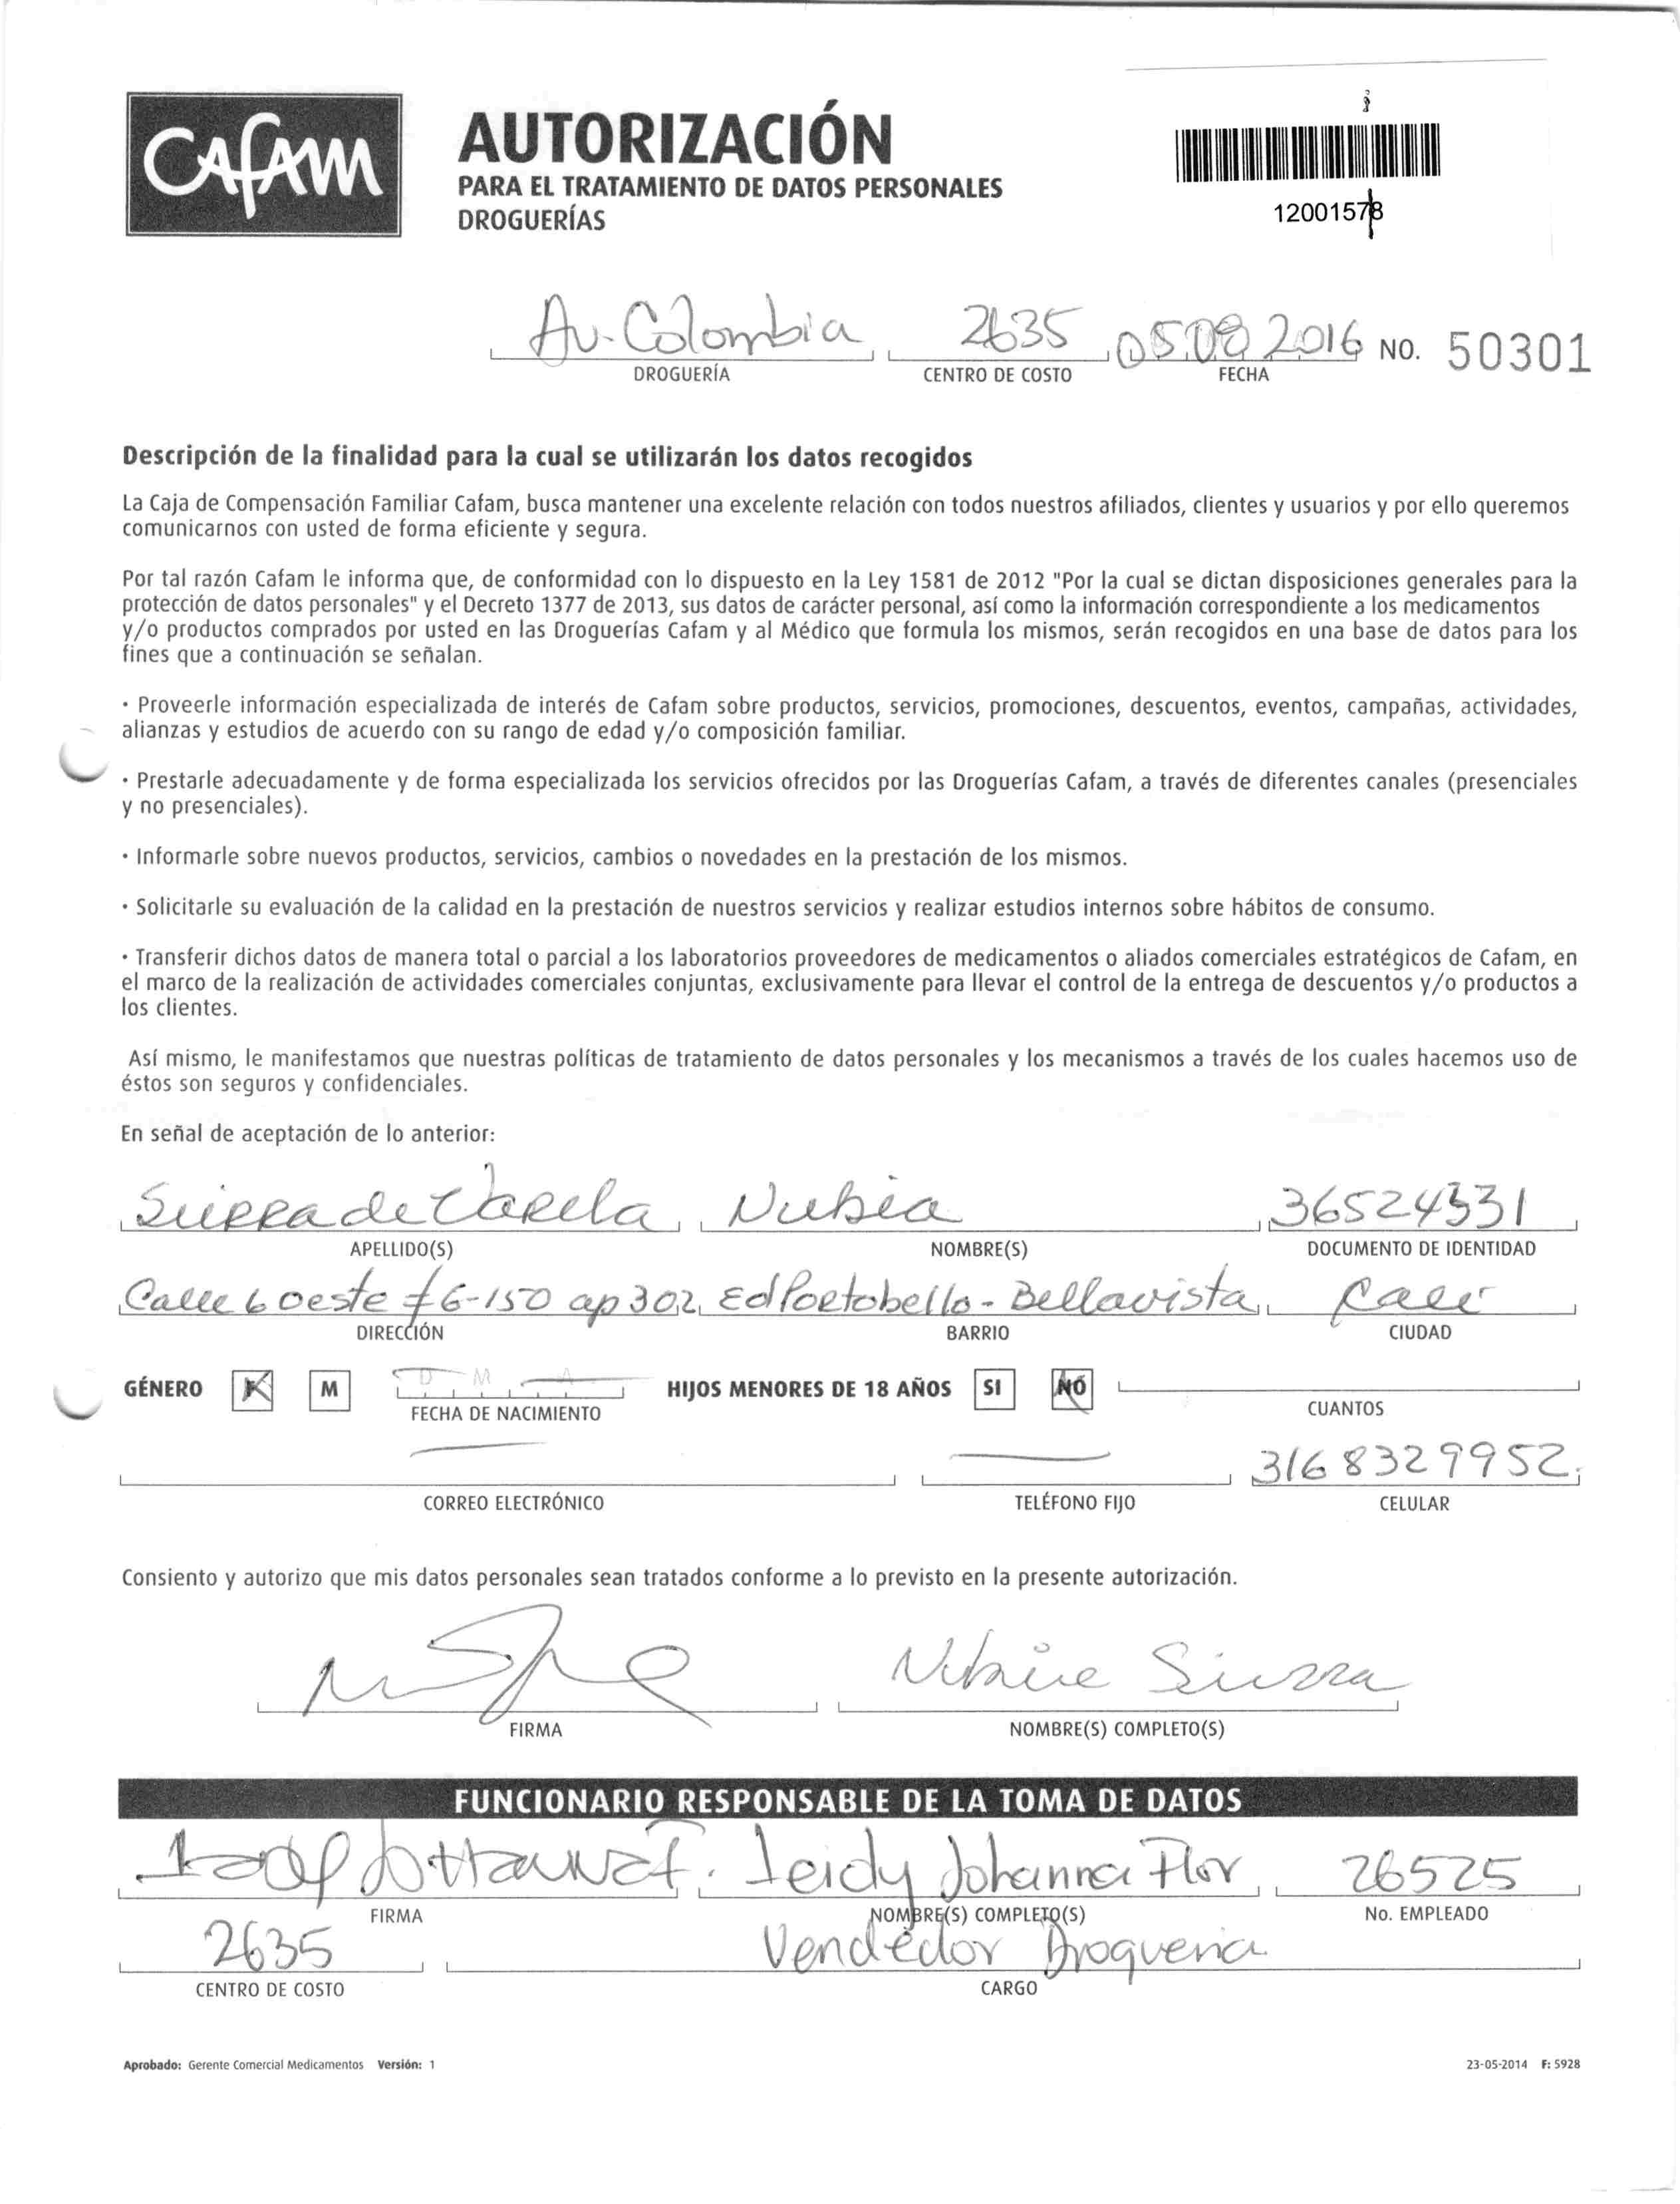 CAFAM
AUTORIZACIÓN
PARA EL TRATAMIENTO DE DATOS PERSONALES
DROGUERÍAS
12001578
Av. Colombia 2635 05.08 2016 NO. 50301
DROGUERÍA CENTRO DE COSTO FECHA
Descripción de la finalidad para la cual se utilizarán los datos recogidos
La Caja de Compensación Familiar Cafam, busca mantener una excelente relación con todos nuestros afiliados, clientes y usuarios y por ello queremos
comunicarnos con usted de forma eficiente y segura.
Por tal razón Cafam le informa que, de conformidad con lo dispuesto en la Ley 1581 de 2012 "Por la cual se dictan disposiciones generales para la
protección de datos personales" y el Decreto 1377 de 2013, sus datos de carácter personal, así como la información correspondiente a los medicamentos
y/o productos comprados por usted en las Droguerías Cafam y al Médico que formula los mismos, serán recogidos en una base de datos para los
fines que a continuación se señalan.
· Proveerle información especializada de interés de Cafam sobre productos, servicios, promociones, descuentos, eventos, campañas, actividades,
alianzas y estudios de acuerdo con su rango de edad y/o composición familiar.
· Prestarle adecuadamente y de forma especializada los servicios ofrecidos por las Droguerías Cafam, a través de diferentes canales (presenciales
y no presenciales).
· Informarle sobre nuevos productos, servicios, cambios o novedades en la prestación de los mismos.
· Solicitarle su evaluación de la calidad en la prestación de nuestros servicios y realizar estudios internos sobre hábitos de consumo.
· Transferir dichos datos de manera total o parcial a los laboratorios proveedores de medicamentos o aliados comerciales estratégicos de Cafam, en
el marco de la realización de actividades comerciales conjuntas, exclusivamente para llevar el control de la entrega de descuentos y/o productos a
los clientes.
Así mismo, le manifestamos que nuestras políticas de tratamiento de datos personales y los mecanismos a través de los cuales hacemos uso de
éstos son seguros y confidenciales.
En señal de aceptación de lo anterior:
Sierra de Varela Nubia 36524331
APELLIDO(S) NOMBRE(S) DOCUMENTO DE IDENTIDAD
Calle 6 oeste # 6-150 ap 302 Ed Portobello - Bellavista Cali
DIRECCIÓN BARRIO CIUDAD
GÉNERO M D M A HIJOS MENORES DE 18 AÑOS SI NO
FECHA DE NACIMIENTO CUANTOS
3168329952
CORREO ELECTRÓNICO TELÉFONO FIJO CELULAR
Consiento y autorizo que mis datos personales sean tratados conforme a lo previsto en la presente autorización.
Nubia Sierra
FIRMA NOMBRE(S) COMPLETO(S)
FUNCIONARIO RESPONSABLE DE LA TOMA DE DATOS
Leidy Johanna Flor 26525
FIRMA NOMBRE(S) COMPLETO(S) No. EMPLEADO
2635 Vendedor Drogueria
CENTRO DE COSTO CARGO
Aprobado: Gerente Comercial Medicamentos Versión: 1 23-05-2014 F: 5928